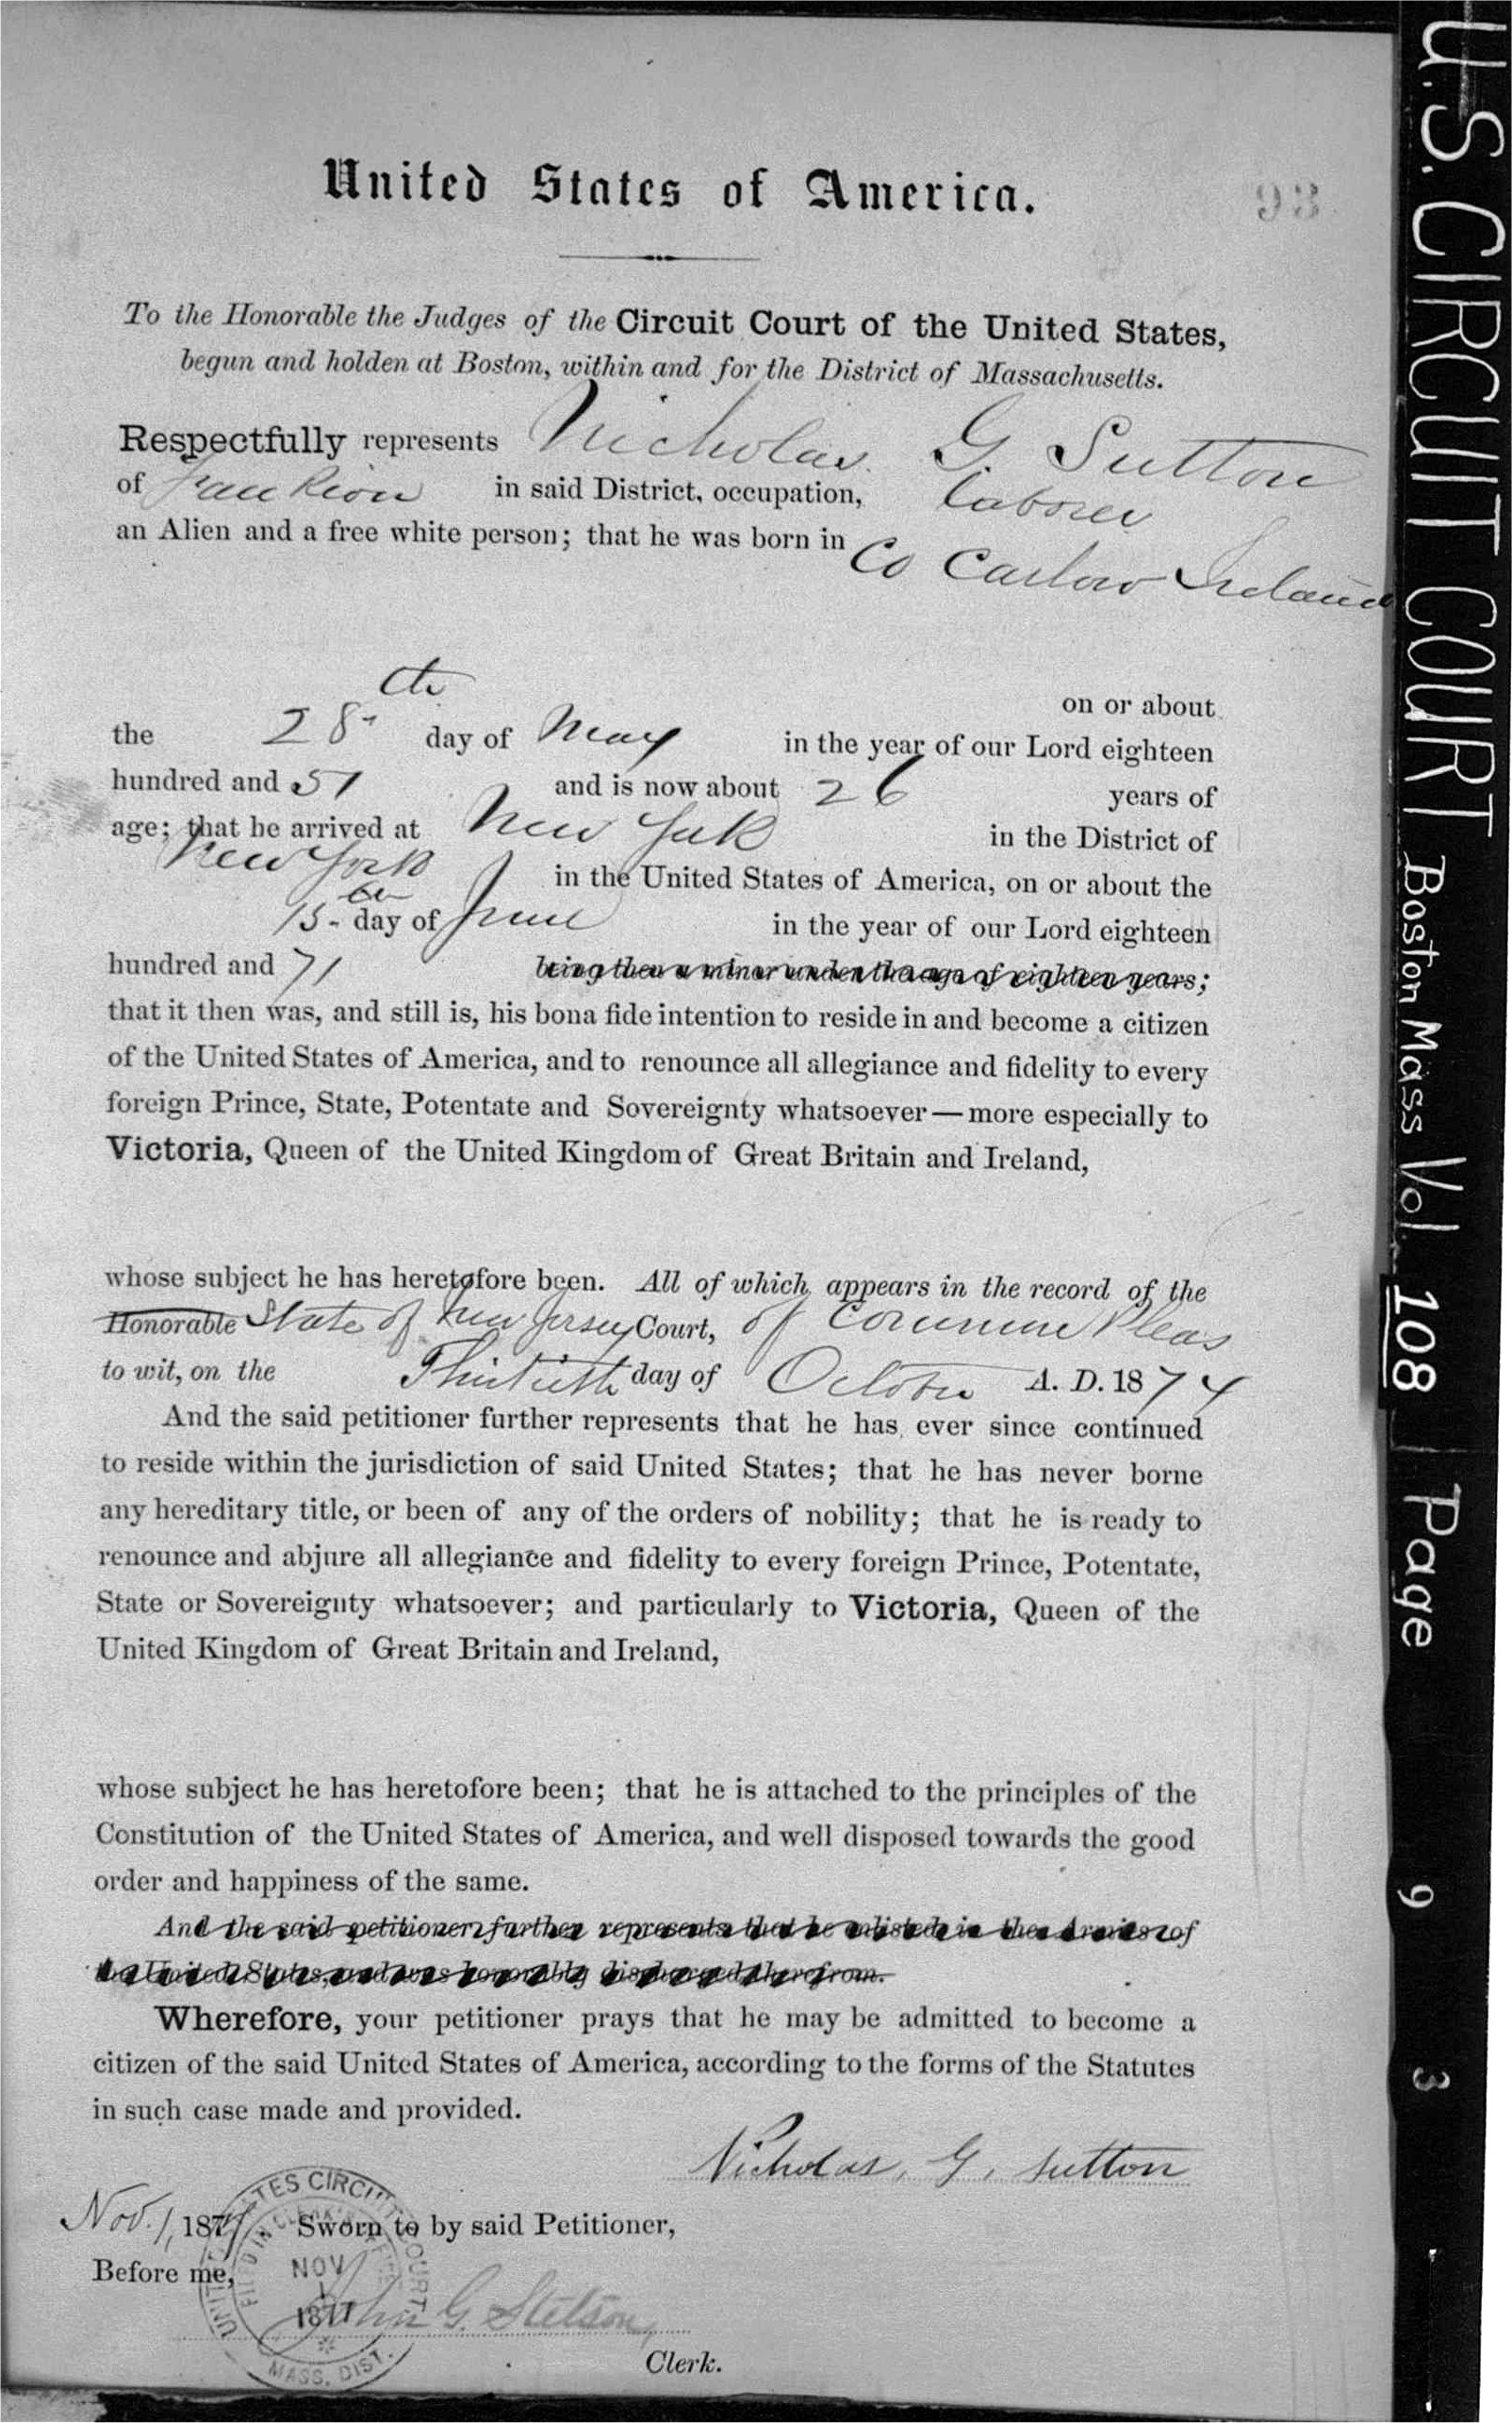 United States of America.
93
To the Honorable the Judges of the Circuit Court of the United States,
begun and holden at Boston, within and for the District of Massachusetts.
Respectfully represents Nicholas G. Sutton
of in said District, occupation, laborer
an Alien and a free white person; that he was born in Co Carlow Ireland
on or about
the 28th day of May in the year of our Lord eighteen
hundred and 51 and is now about 26 years of
age; that he arrived at New York in the District of
New York in the United States of America, on or about the
15th day of June in the year of our Lord eighteen
hundred and 71 being then a minor under the age of eighteen years;
that it then was, and still is, his bona fide intention to reside in and become a citizen
of the United States of America, and to renounce all allegiance and fidelity to every
foreign Prince, State, Potentate and Sovereignty whatsoever—more especially to
Victoria, Queen of the United Kingdom of Great Britain and Ireland,
whose subject he has heretofore been. All of which appears in the record of the
Honorable State of New Jersey Court, of Common Pleas
to wit, on the Thirtieth day of October A. D. 1874
And the said petitioner further represents that he has ever since continued
to reside within the jurisdiction of said United States; that he has never borne
any hereditary title, or been of any of the orders of nobility; that he is ready to
renounce and abjure all allegiance and fidelity to every foreign Prince, Potentate,
State or Sovereignty whatsoever; and particularly to Victoria, Queen of the
United Kingdom of Great Britain and Ireland,
whose subject he has heretofore been; that he is attached to the principles of the
Constitution of the United States of America, and well disposed towards the good
order and happiness of the same.
And the said petitioner further represents that he enlisted in the Armies of
the United States, and was honorably discharged therefrom.
Wherefore, your petitioner prays that he may be admitted to become a
citizen of the said United States of America, according to the forms of the Statutes
in such case made and provided.
Nicholas. G. Sutton
Nov. 1, 1877 Sworn to by said Petitioner,
Before me,
John G. Stetson,
Clerk.
UNITED STATES CIRCUIT COURT
FILED IN CLERK'S OFFICE
NOV
1
1877
MASS. DIST.
U.S. CIRCUIT COURT Boston Mass Vol. 108 Page 9 3